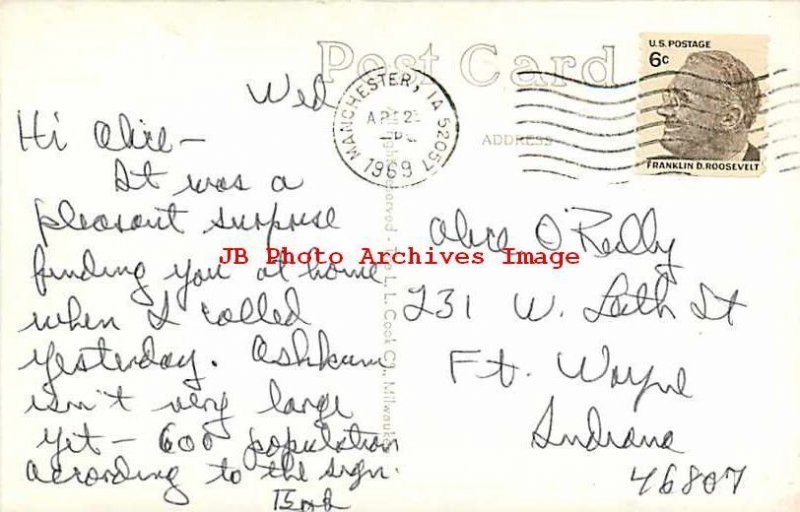 Post Card
U.S. POSTAGE
6c
FRANKLIN D. ROOSEVELT
MANCHESTER, IA 52057
1969
ADDRESS
Wed
Hi Alice -
It was a
pleasant surprise
finding you at home
when I called
yesterday. Ashkum
isn't very large
yet - 600 population
according to the sign.
Alice O'Reilly
231 W. Leith St
Ft. Wayne
Indiana
46807
L. L. Cook Co., Milwaukee
JB Photo Archives Image